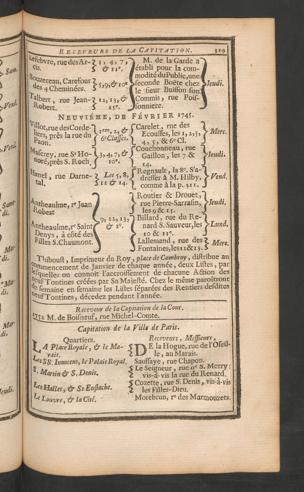 RECEVEURS DE LA CAPITATION. 319
Lefebvre, rue des Arcis.
Bouzereau, Carefour des 4 Cheminées.
Talbert, rue Jean-Robert.
12, 13, & 15e.
M. de la Garde a établi pour la commodité du Public, une seconde Boëte chez le sieur Buisson son Commis, rue Poissonniere.
Jeudi.
NEUVIÉME, DE FÉVRIER 1745.
près la rue du Paon.
noré, près S. Roch,
rue Darnetal.
Carelet, rue des Ecouffes, les 1, 2, 3, 4, 5, & 6e Cl.
Merc.
Couchonneau, rue Gaillon, les 7 & 14.
Jeudi.
Regnault, la 8e. S'adresser à M. Hilby, comme à la p. 311.
Vend.
Antheaulme, re Jean Robert
Antheaulme, re Saint Denys, à côté des Filles S. Chaumont.
Routier & Drouet, rue Pierre-Sarrasin, les 9 & 15.
Jeudi.
Billard, rue du Renard S. Sauveur, les 10 & 11e.
Lund.
Lallemand, rue des Fontaines, les 12 & 13.
Merc.
Thiboust, Imprimeur du Roy, place de Cambray, distribue au commencement de Janvier de chaque année, deux Listes, par lesquelles on connoît l'accroissement de chacune Action des neuf Tontines créées par Sa Majesté. Chez le même paroîtront de semaine en semaine les Listes séparées des Rentiers desdites neuf Tontines, décedez pendant l'année.
Receveur de la Capitation de la Cour.
M. de Boisneuf, rue Michel-Comte.
Capitation de la Ville de Paris.
Quartiers.
Receveurs, Messieurs,
LA Place Royale, & le Marais.
DE la Hogue, rue de l'Oseille, au Marais.
Les SS. Innocens, le Palais Royal,
Saussaye, rue Chapon.
S. Martin & S. Denis.
Le Seigneur, rue Ne S. Merry: vis-à-vis la rue du Renard.
Les Halles, & St Eustache.
Cozette, rue S. Denis, vis-à-vis les Filles-Dieu.
Le Louvre, & la Cité.
Morebrun, re des Marmouzets.